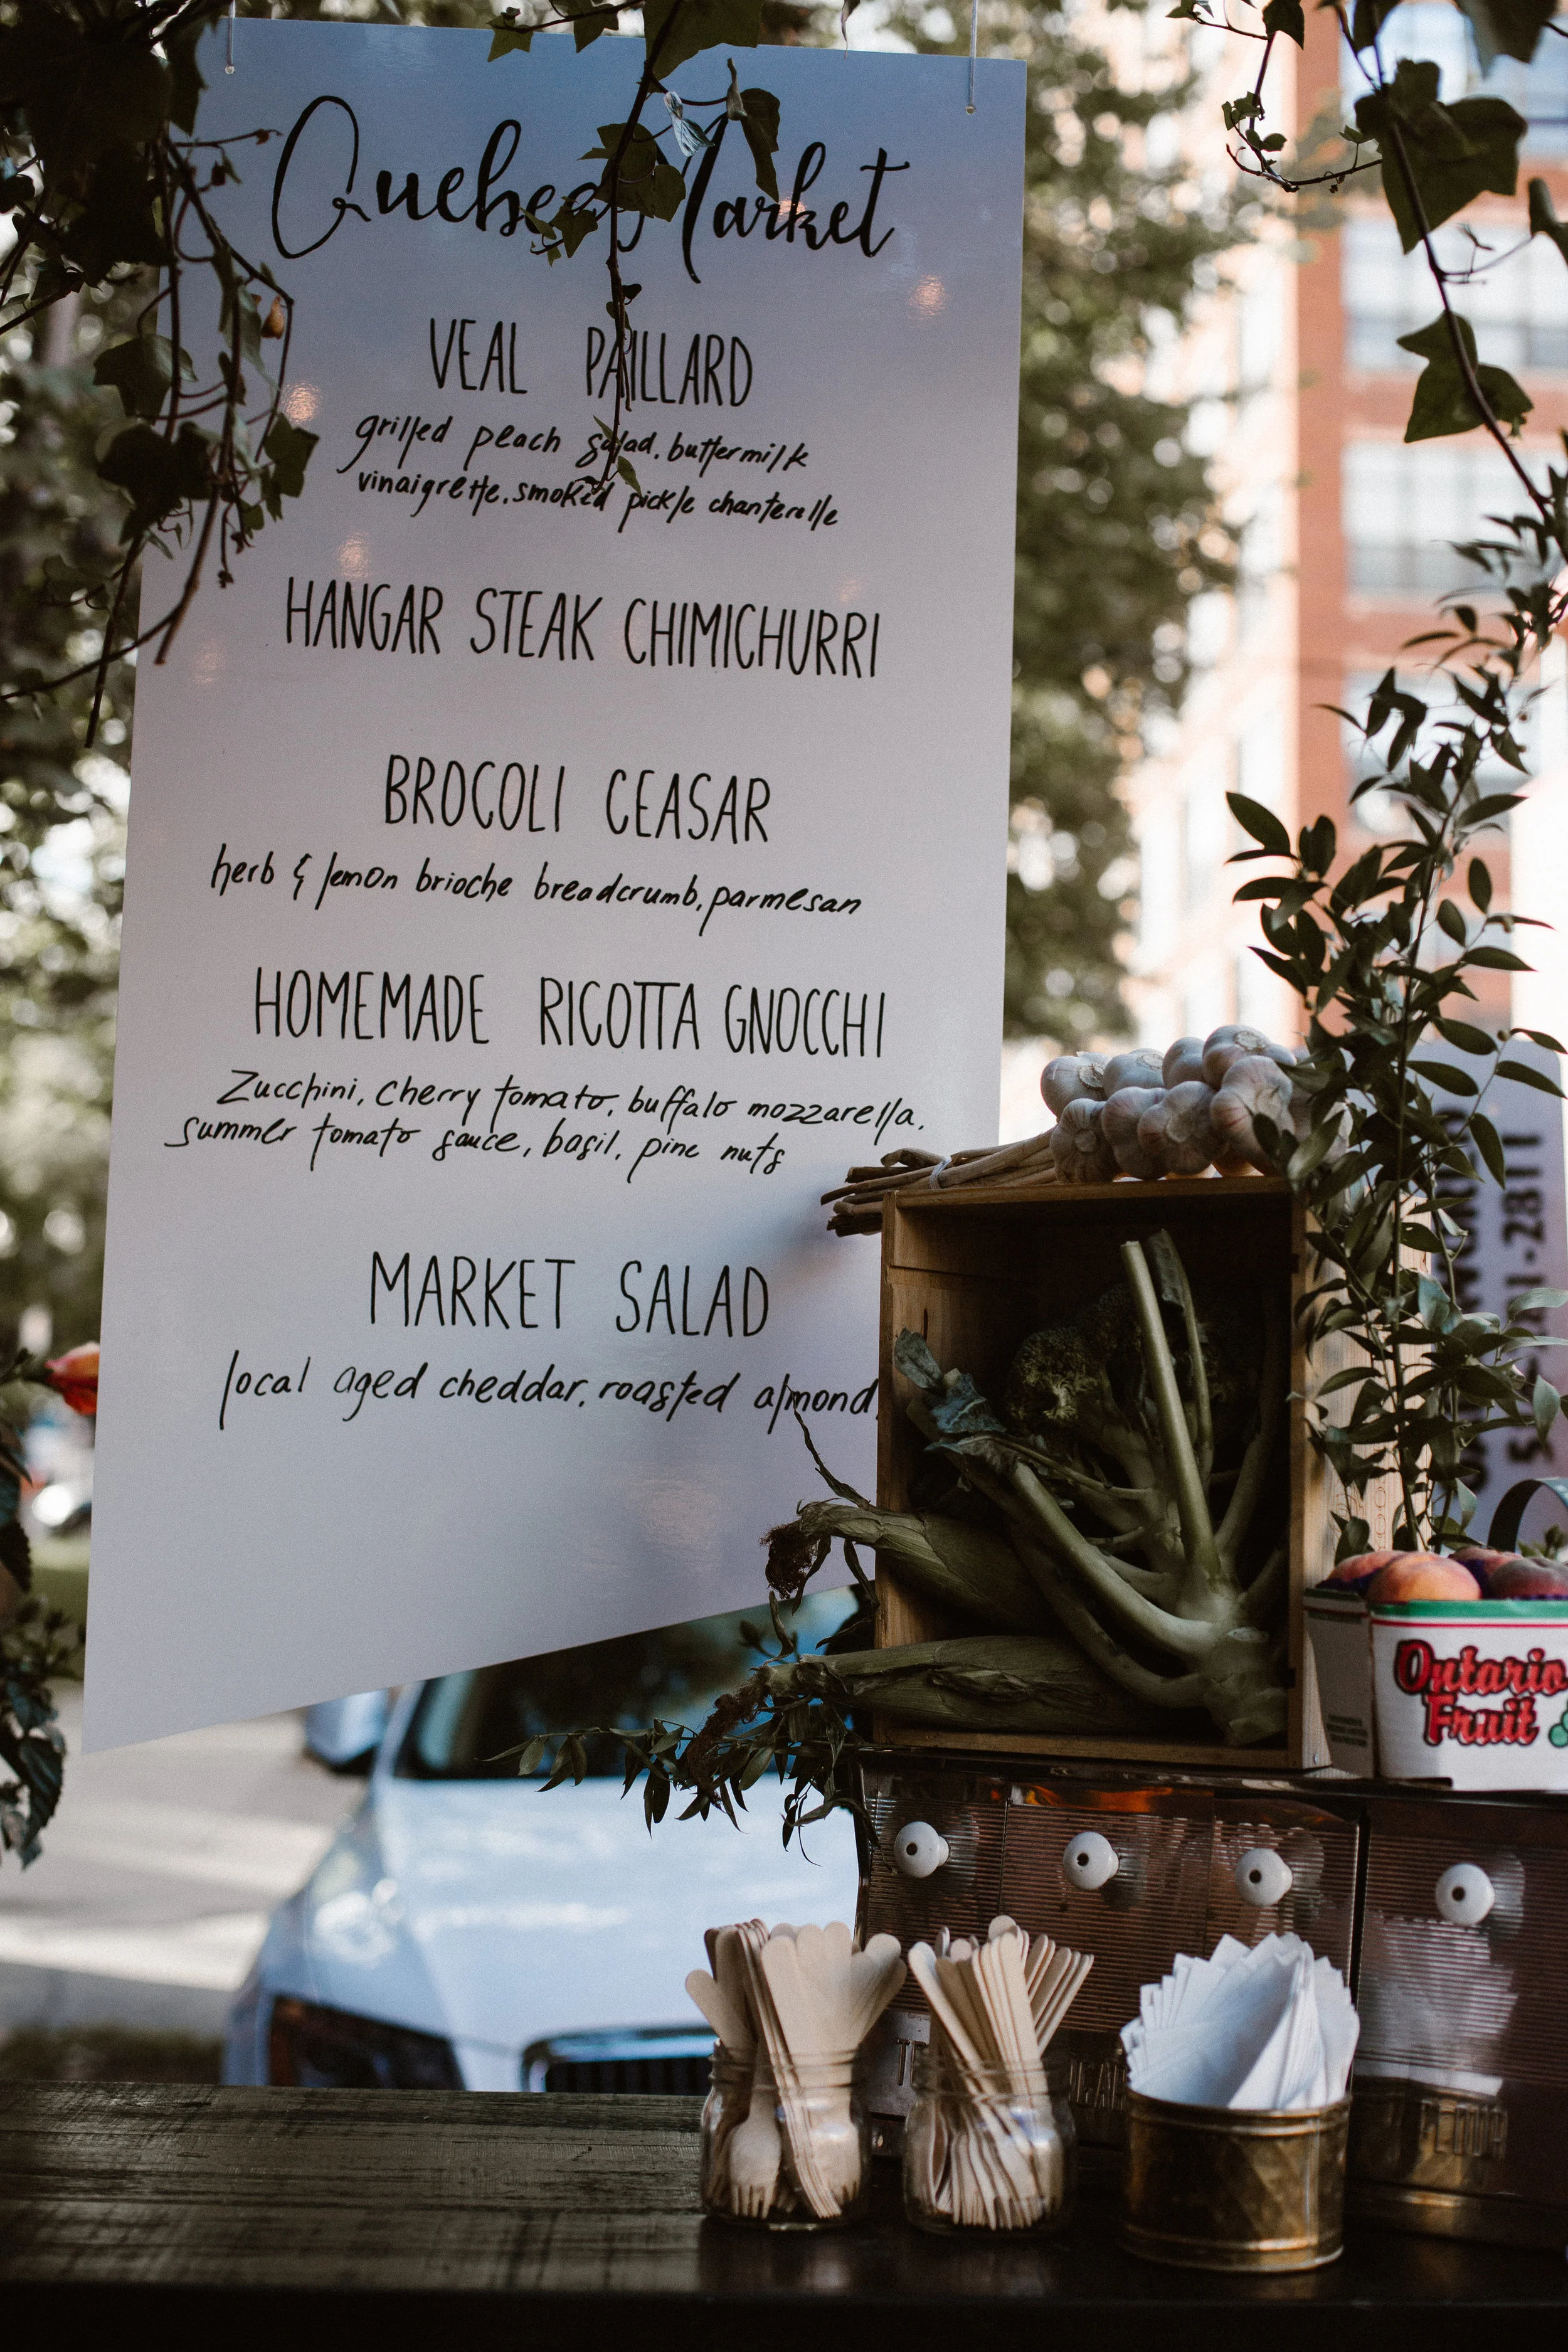 Quebec Market
VEAL PAILLARD
grilled peach salad, buttermilk
vinaigrette, smoked pickle chanterelle
HANGAR STEAK CHIMICHURRI
BROCOLI CEASAR
herb & lemon brioche breadcrumb, parmesan
HOMEMADE RICOTTA GNOCCHI
Zucchini, Cherry tomato, buffalo mozzarella,
summer tomato sauce, basil, pine nuts
MARKET SALAD
local aged cheddar, roasted almond,
Ontario
Fruit